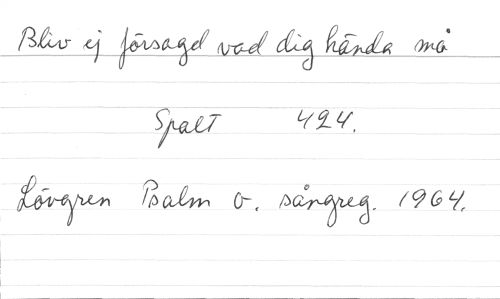 Bliv ej försagd vad dig hända må
Spalt 424.
Lövgren Psalm o. sångreg. 1964.